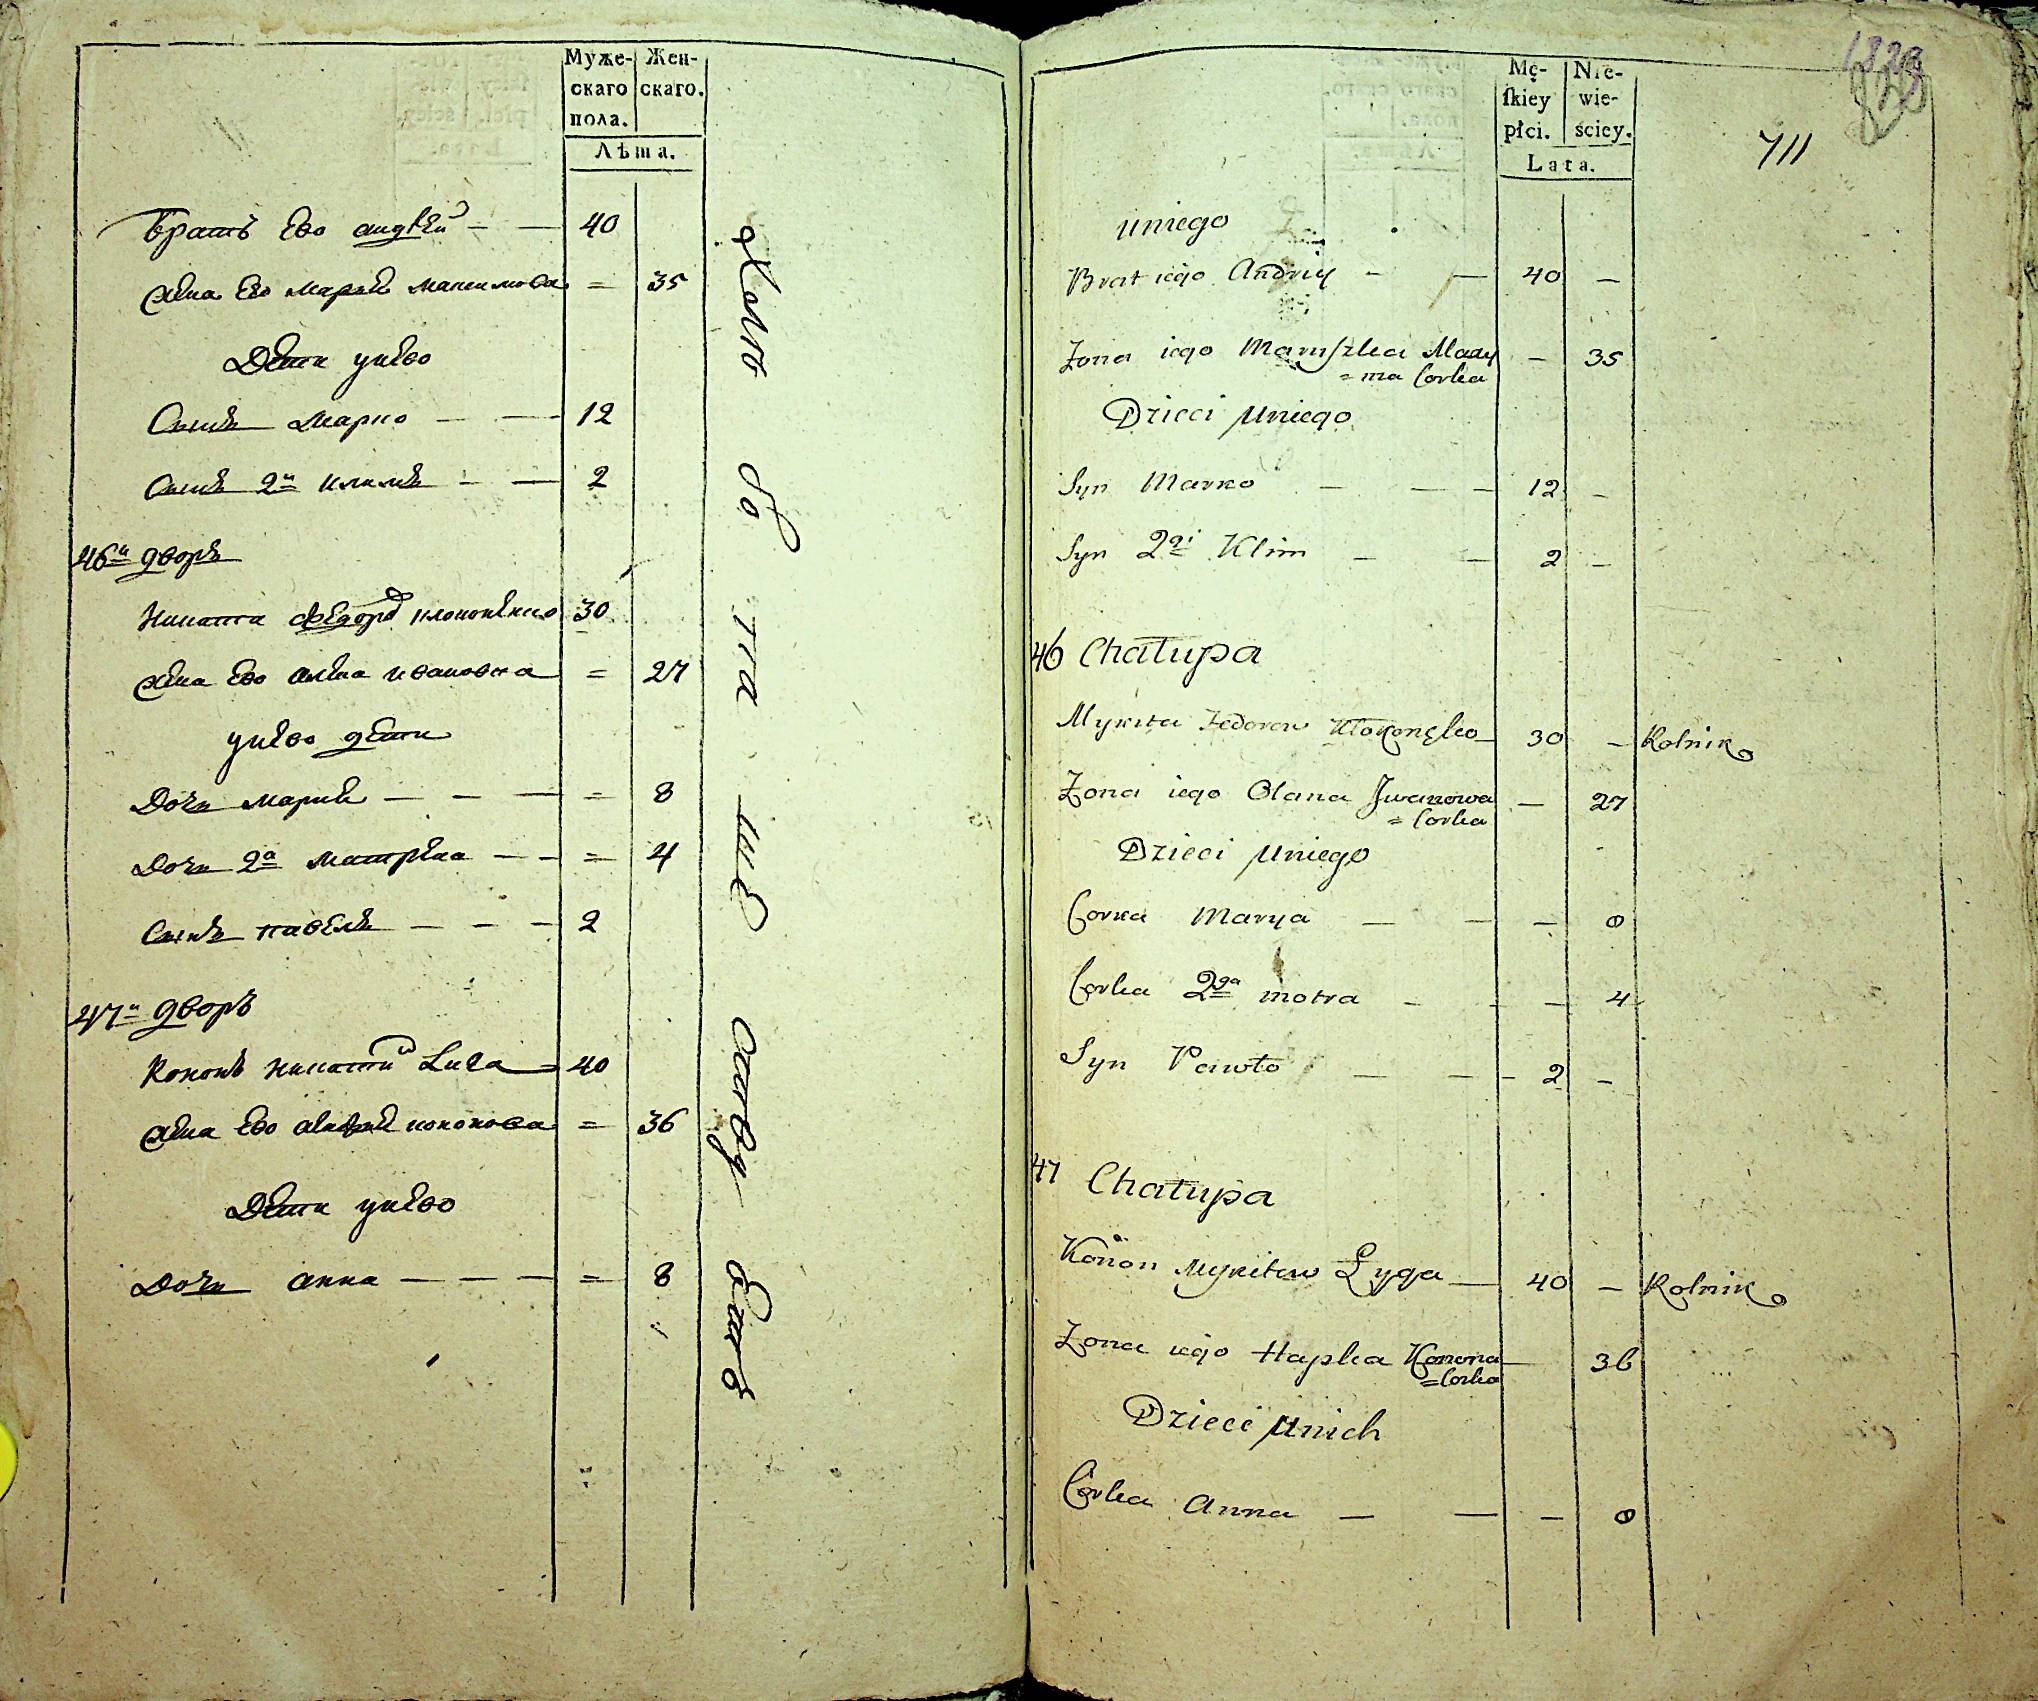 Муже-
скаго
пола.
Жен-
скаго.
Лѣта.
Братъ Ево андрей — — 40
жена Ево Марья = 35
Дети унево
Сынъ Марко — — 12
Сынъ 2й климъ — — 2
46й дворъ
Никита федоръ клоконенко 30
жена Ево алена Ивановна = 27
унево дети
Дочь мария — — — = 8
Дочь 2а Матрена — — = 4
Сынъ павелъ — — — 2
47й дворъ
Кононъ никитий Lига = 40
жена Ево кононова = 36
Дети унево
Дочь анна — — — = 8
Mę-
ſkiey
płci.
Nie-
wie-
sciey.
Lata.
711
uniego
Brat iego Andriy — — 40 —
Żona iego Maruſzka — 35
= ma Corka
Dzieci uniego
Syn Marko — — — 12 —
Syn 2gi Klim — — 2 —
46 Chałupa
Mykita Fedorow Kłokonęko — 30 — Rolnik
Żona iego Olana Jwanowa — 27
= Corka
Dzieci uniego
Corka Marya — — — 8
Corka 2ga motra — — — 4
Syn Pawło — — — 2 —
47 Chałupa
Konon Mykitow Łyga — 40 — Rolnik
Żona iego Hapka Konona — 36
= Corka
Dzieci unich
Corka Anna — — — 8